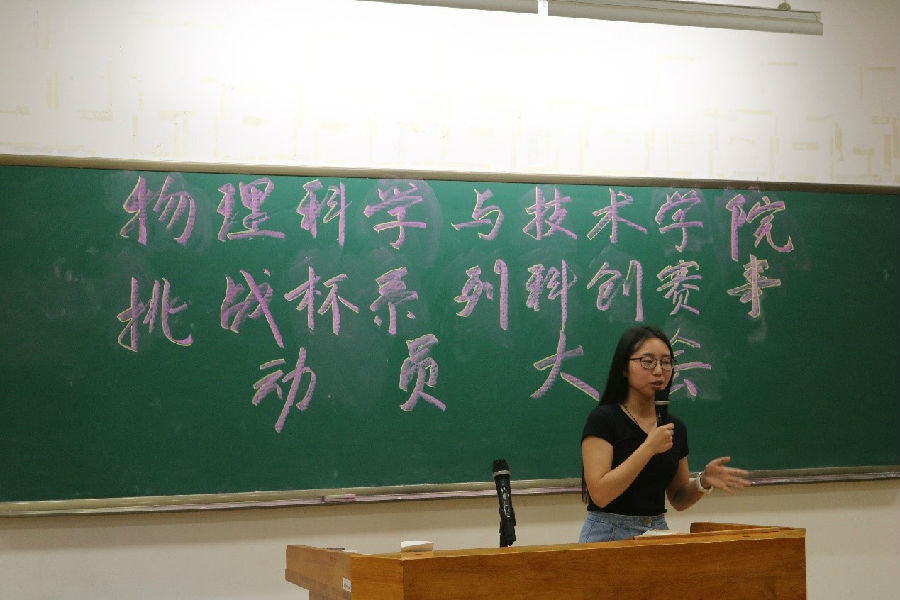 物理科学与技术学院
挑战杯系列科创赛事
动员大会